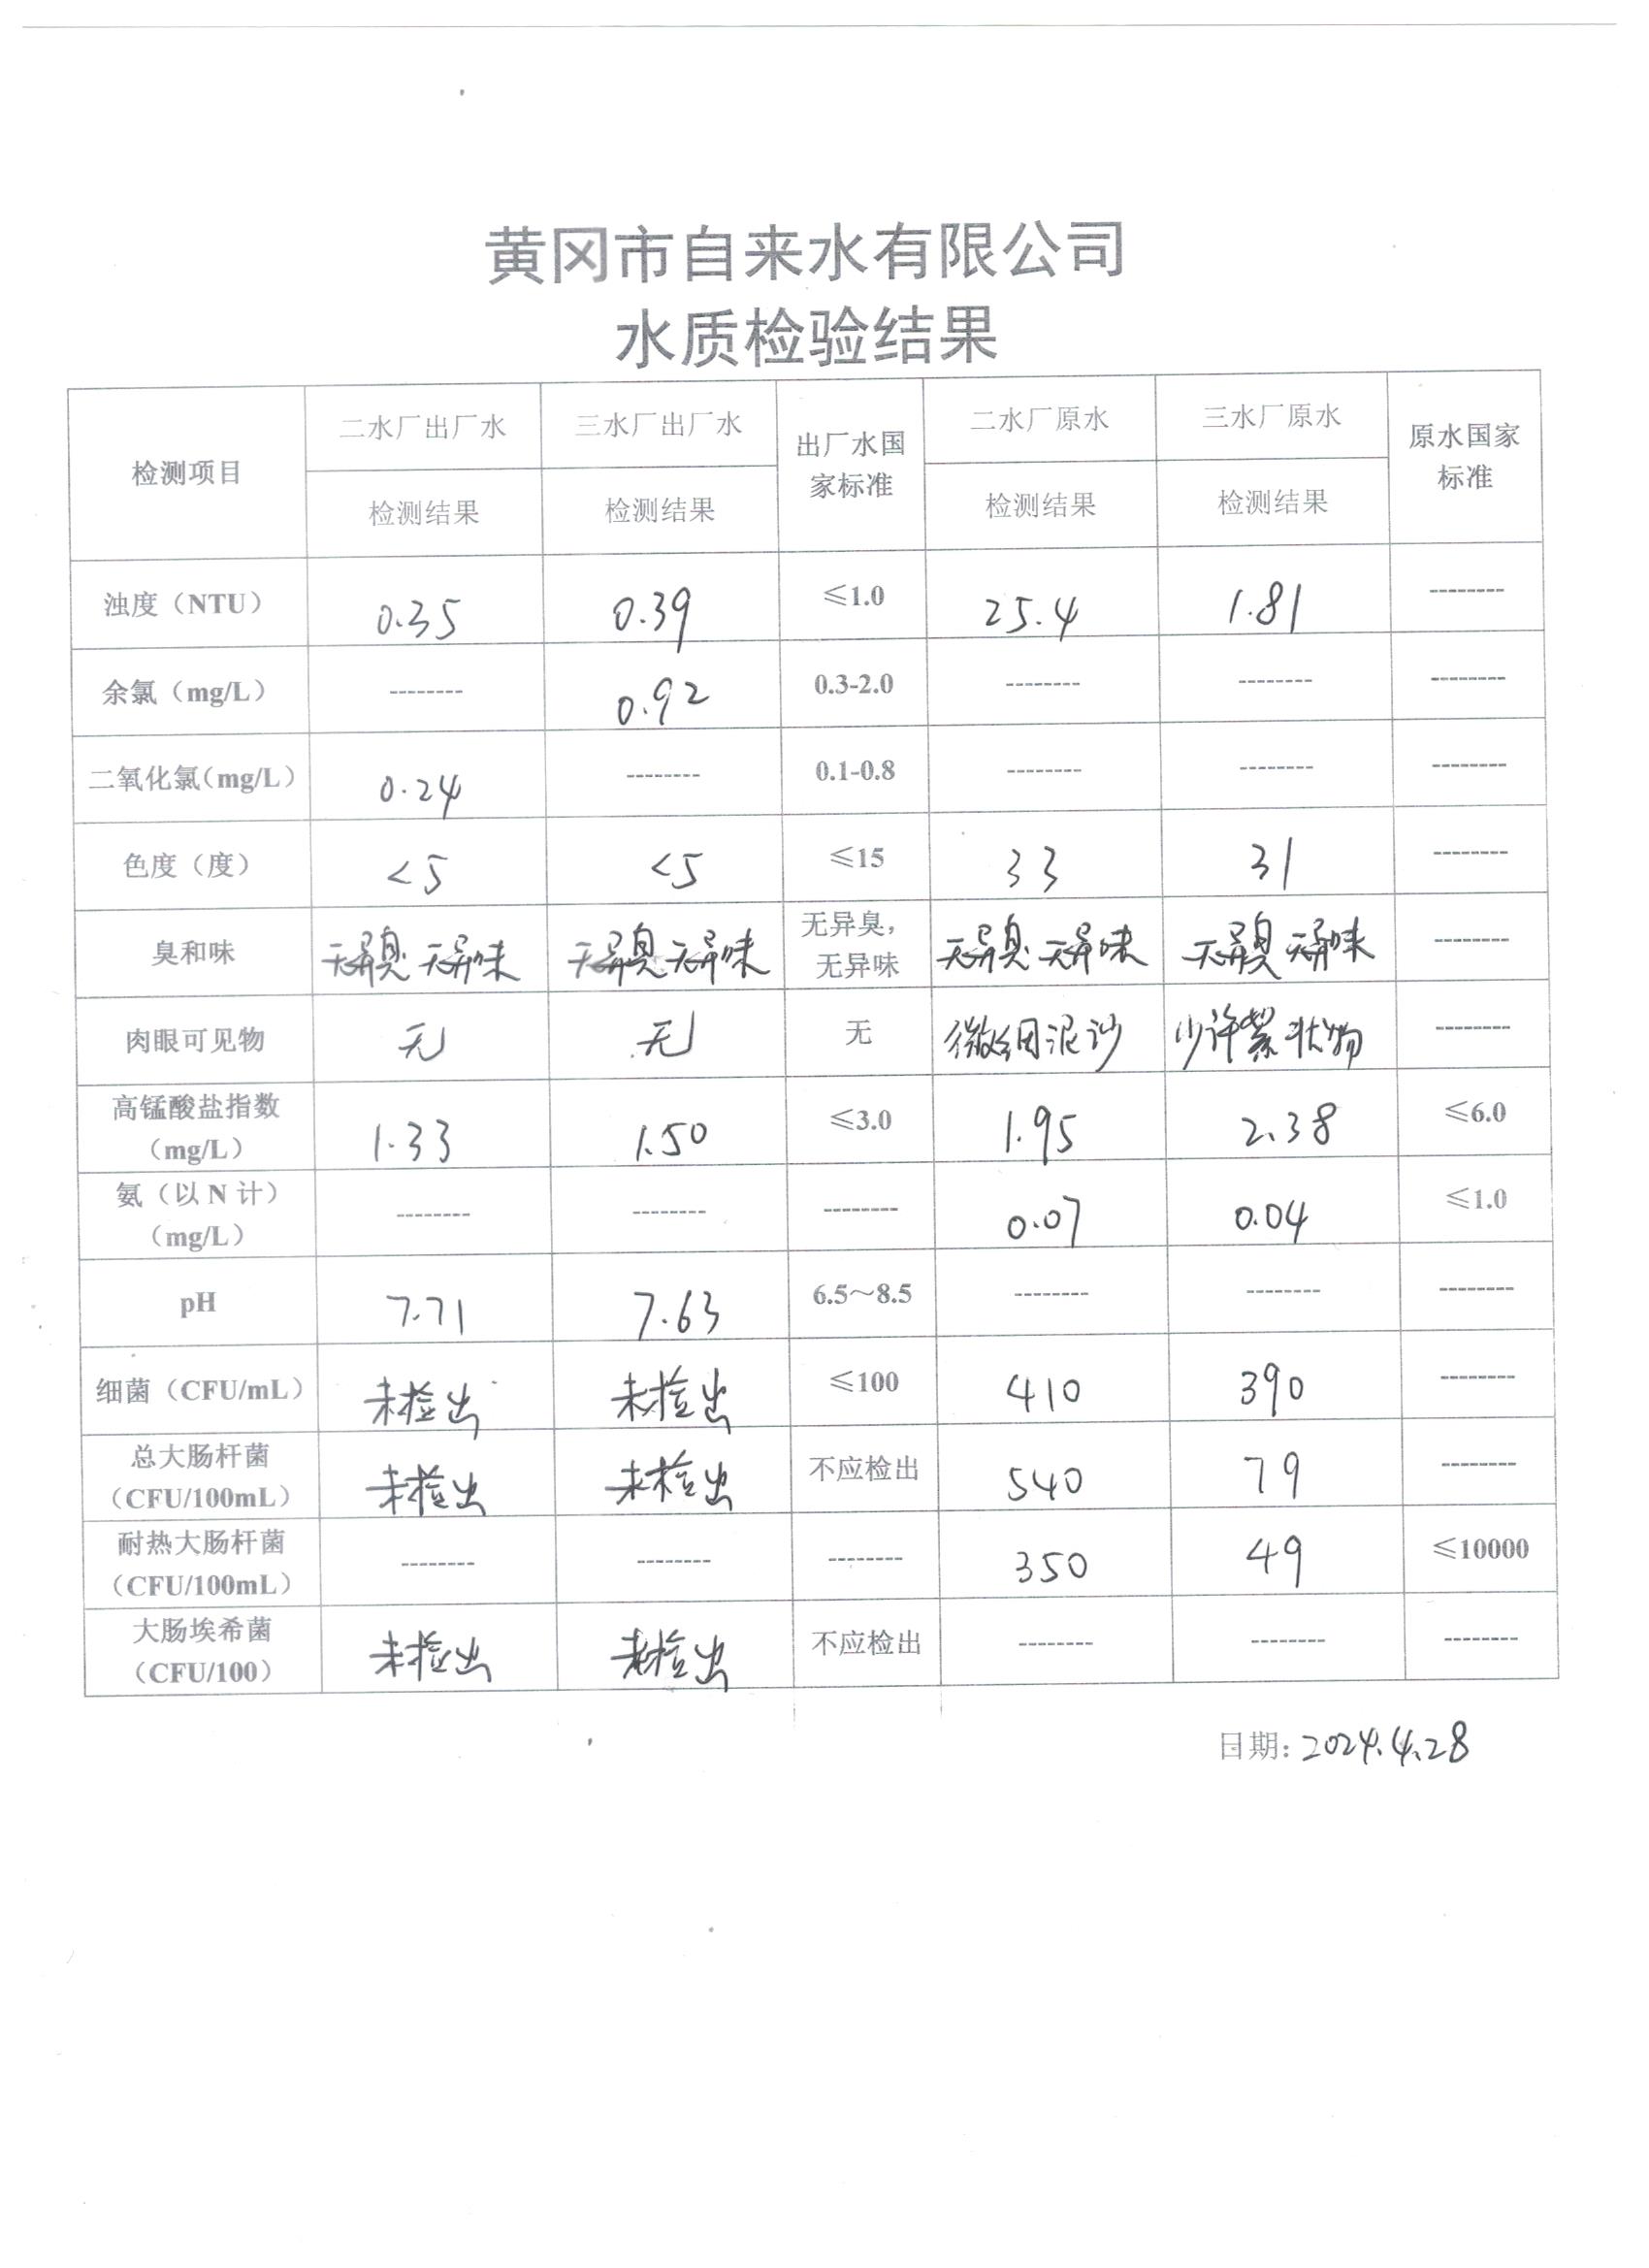 黄冈市自来水有限公司
水质检验结果
检测项目 二水厂出厂水 三水厂出厂水 出厂水国家标准 二水厂原水 三水厂原水 原水国家标准
检测结果 检测结果 检测结果 检测结果
浊度（NTU） 0.35 0.39 ≤1.0 25.4 1.81 --------
余氯（mg/L） -------- 0.92 0.3-2.0 -------- -------- --------
二氧化氯（mg/L） 0.24 -------- 0.1-0.8 -------- -------- --------
色度（度） <5 <5 ≤15 33 31 --------
臭和味 无异臭.无异味 无异臭 无异味 无异臭，无异味 无异臭.无异味 无异臭 无异味 --------
肉眼可见物 无 无 无 微细泥沙 少许絮状物 --------
高锰酸盐指数（mg/L） 1.33 1.50 ≤3.0 1.95 2.38 ≤6.0
氨（以 N 计）（mg/L） -------- -------- -------- 0.07 0.04 ≤1.0
pH 7.71 7.63 6.5～8.5 -------- -------- --------
细菌（CFU/mL） 未检出 未检出 ≤100 410 390 --------
总大肠杆菌（CFU/100mL） 未检出 未检出 不应检出 540 79 --------
耐热大肠杆菌（CFU/100mL） -------- -------- -------- 350 49 ≤10000
大肠埃希菌（CFU/100） 未检出 未检出 不应检出 -------- -------- --------
日期：2024.4.28